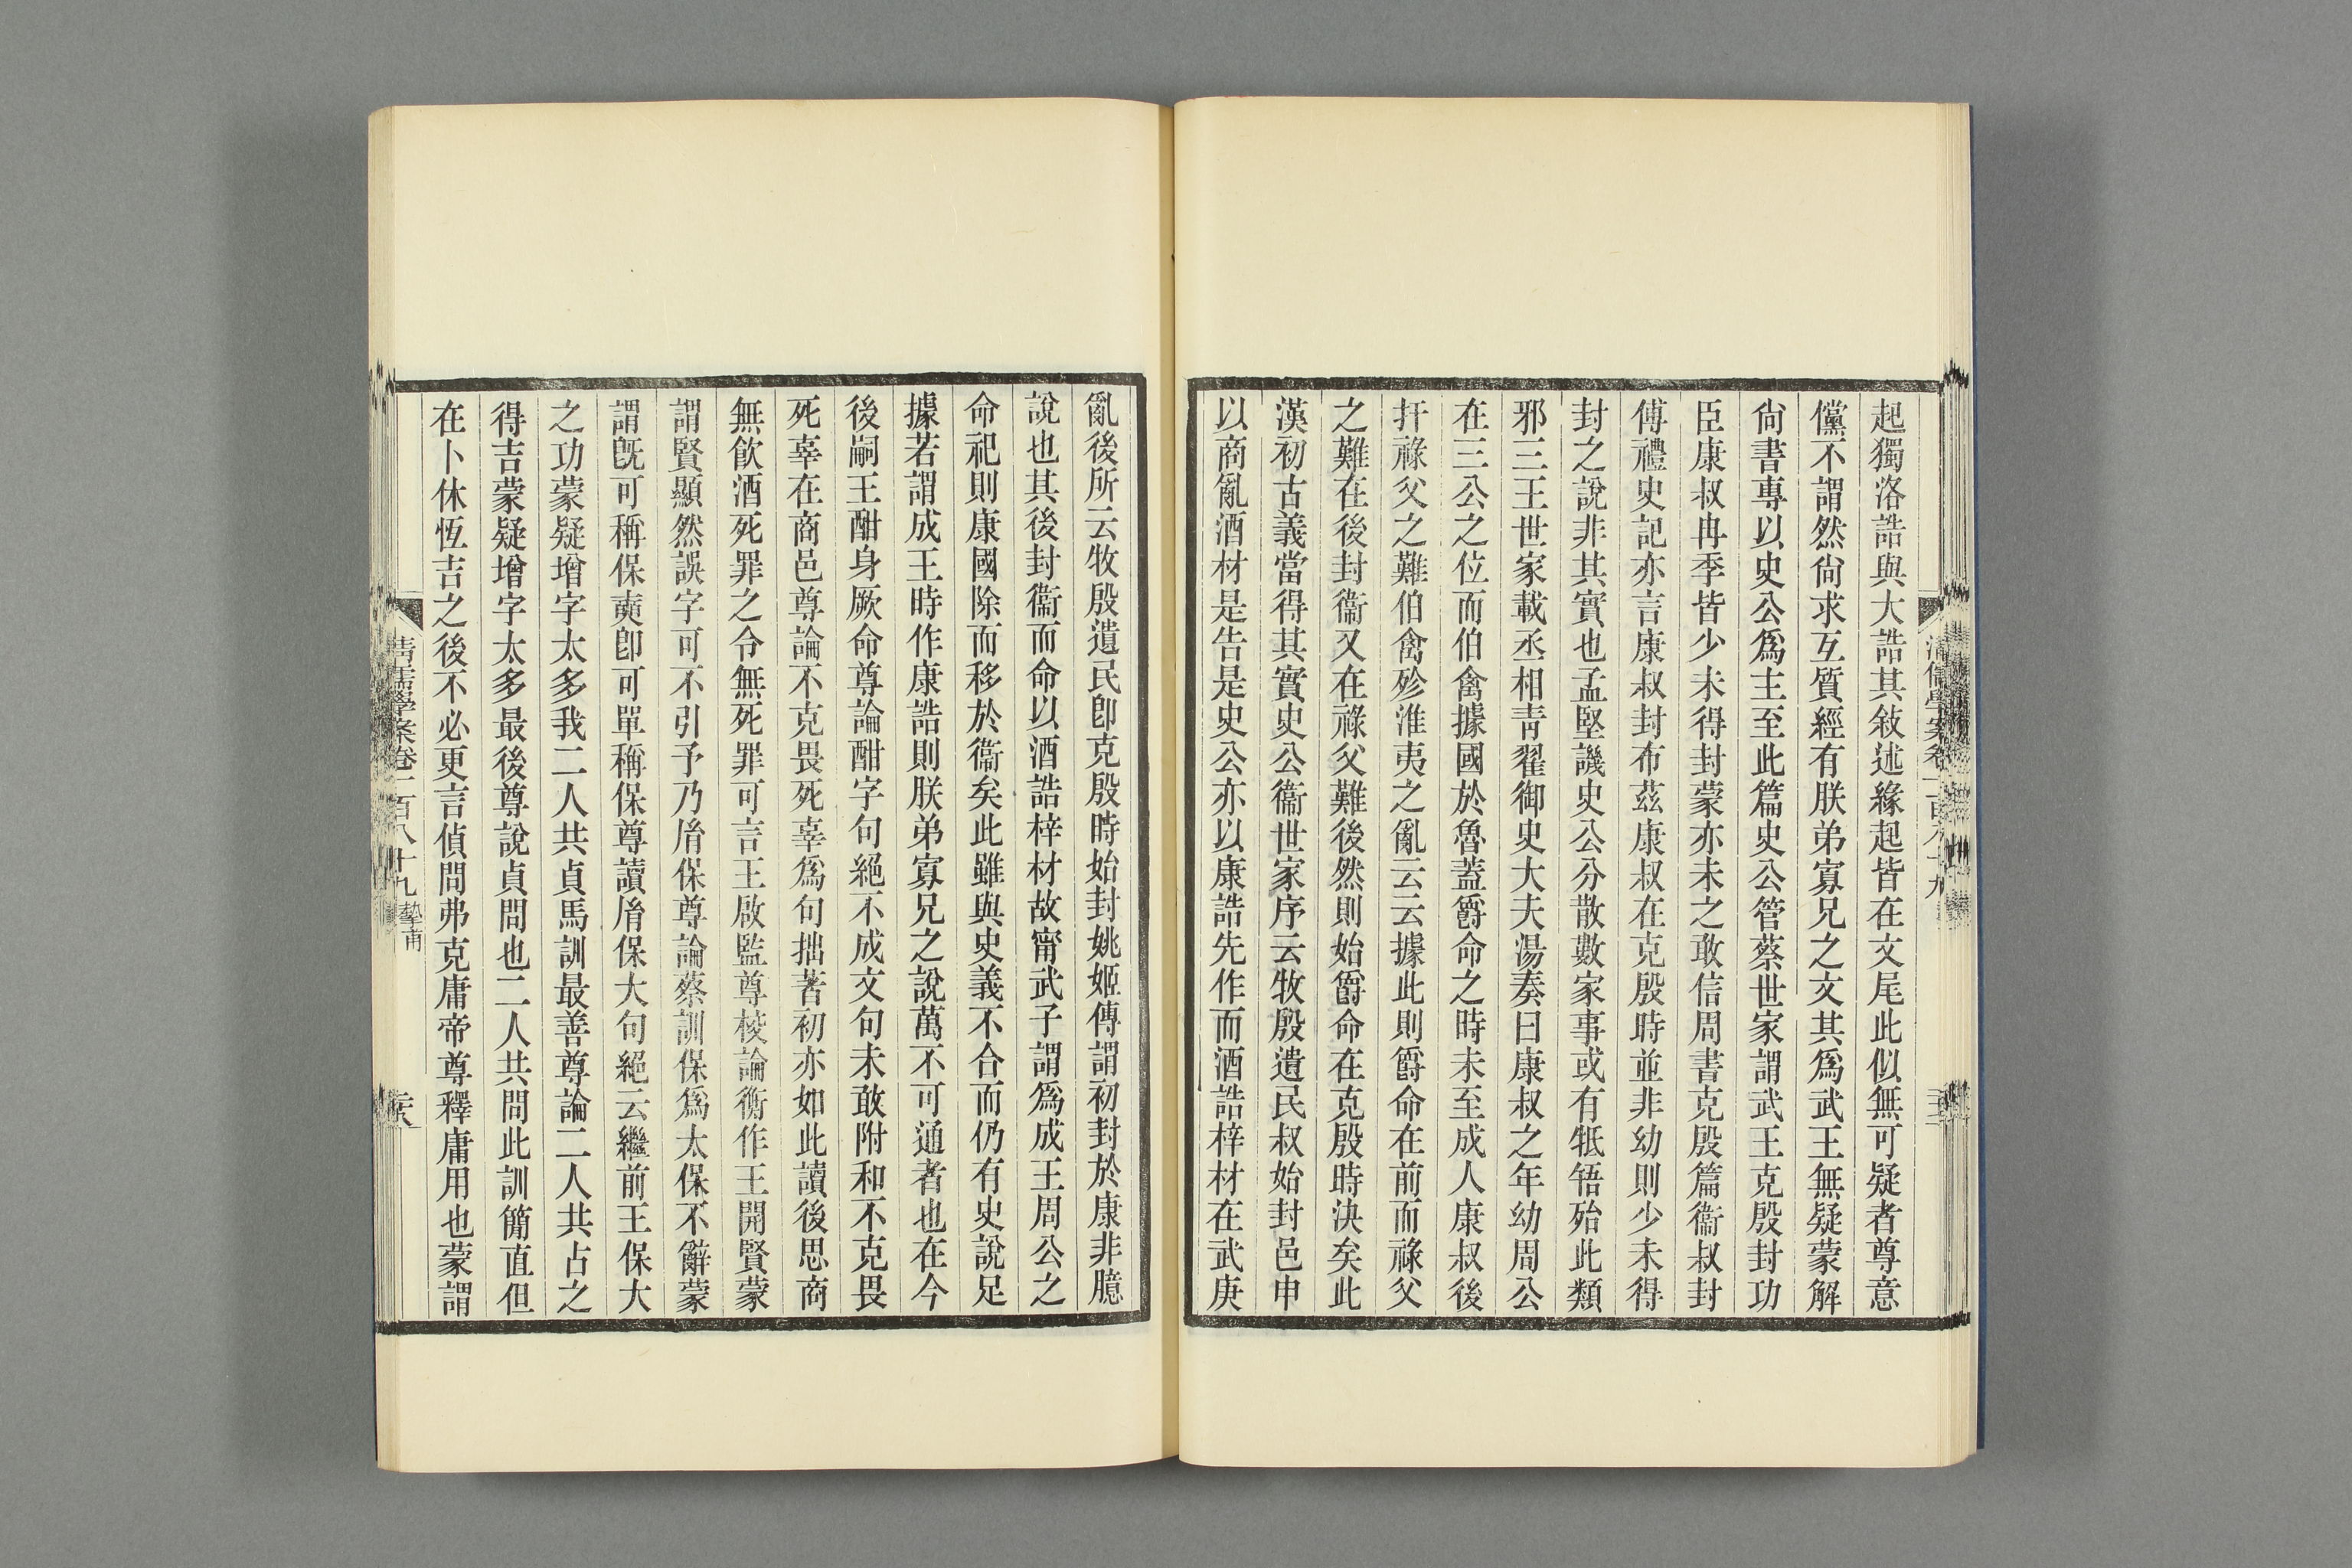 起獨洛誥與大誥其敍述緣起皆在文尾此似無可疑者尊意
儻不謂然尙求互質經有朕弟寡兄之文其爲武王無疑蒙解
尙書專以史公爲主至此篇史公管蔡世家謂武王克殷封功
臣康叔冉季皆少未得封蒙亦未之敢信周書克殷篇衞叔封
傅禮史記亦言康叔封布茲康叔在克殷時並非幼則少未得
封之說非其實也孟堅譏史公分散數家事或有牴牾殆此類
邪三王世家載丞相靑翟御史大夫湯奏曰康叔之年幼周公
在三公之位而伯禽據國於魯蓋爵命之時未至成人康叔後
扞祿父之難伯禽殄淮夷之亂云云據此則爵命在前而祿父
之難在後封衞又在祿父難後然則始爵命在克殷時決矣此
漢初古義當得其實史公衞世家序云牧殷遺民叔始封邑申
以商亂酒材是告是史公亦以康誥先作而酒誥梓材在武庚
亂後所云牧殷遺民卽克殷時始封姚姬傳謂初封於康非臆
說也其後封衞而命以酒誥梓材故甯武子謂爲成王周公之
命祀則康國除而移於衞矣此雖與史義不合而仍有史說足
據若謂成王時作康誥則朕弟寡兄之說萬不可通者也在今
後嗣王酣身厥命尊論酣字句絕不成文句未敢附和不克畏
死辜在商邑尊論不克畏死辜爲句拙著初亦如此讀後思商
無飮酒死罪之令無死罪可言王啟監尊棱論衡作王開賢蒙
謂賢顯然誤字可不引予乃胤保尊論蔡訓保爲太保不辭蒙
謂旣可稱保奭卽可單稱保尊讀胤保大句絕云繼前王保大
之功蒙疑增字太多我二人共貞馬訓最善尊論二人共占之
得吉蒙疑增字太多最後尊說貞問也二人共問此訓簡直但
在卜休恆吉之後不必更言偵問弗克庸帝尊釋庸用也蒙謂
清儒學案卷一百八十九 摯甫